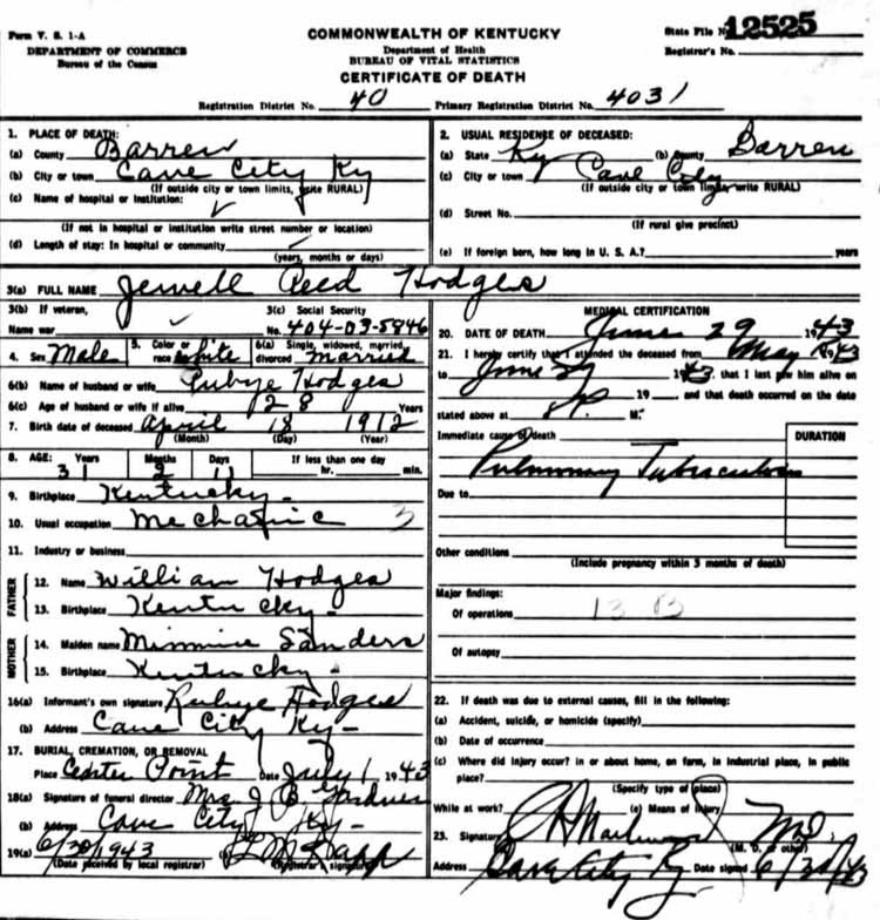 Form V. S. 1-A
DEPARTMENT OF COMMERCE
Bureau of the Census
COMMONWEALTH OF KENTUCKY
Department of Health
BUREAU OF VITAL STATISTICS
CERTIFICATE OF DEATH
State File No. 12525
Registrar's No.
Registration District No. 40 Primary Registration District No. 4031
1. PLACE OF DEATH:
(a) County Barren
(b) City or town Cave City Ky
(If outside city or town limits, write RURAL)
(c) Name of hospital or institution:
(If not in hospital or institution write street number or location)
(d) Length of stay: In hospital or community
(years, months or days)
2. USUAL RESIDENCE OF DECEASED:
(a) State Ky (b) County Barren
(c) City or town Cave City
(If outside city or town limits, write RURAL)
(d) Street No.
(If rural give precinct)
(e) If foreign born, how long in U. S. A.? years
3(a) FULL NAME Jewell Reed Hodges
3(b) If veteran,
Name war
3(c) Social Security
No. 404-03-5846
4. Sex Male 5. Color or race White 6(a) Single, widowed, married, divorced married
6(b) Name of husband or wife Rubye Hodges
6(c) Age of husband or wife if alive 28 Years
7. Birth date of deceased April 18 1912
(Month) (Day) (Year)
8. AGE: Years Months Days If less than one day
31 2 11 hr. min.
9. Birthplace Kentucky-
10. Usual occupation Mechanic 3
11. Industry or business
FATHER
12. Name William Hodges
13. Birthplace Kentucky-
MOTHER
14. Maiden name Minnie Sanders
15. Birthplace Kentucky-
16(a) Informant's own signature Rubye Hodges
(b) Address Cave City Ky-
17. BURIAL, CREMATION, OR REMOVAL
Place Center Point Date July 1 1943
18(a) Signature of funeral director Mrs. J B. Gardner
(b) Address Cave City Ky-
19(a) 6/30/1943
(Date received by local registrar) (Registrar's signature)
MEDICAL CERTIFICATION
20. DATE OF DEATH June 29 1943
21. I hereby certify that I attended the deceased from May 1943
to June 29 1943, that I last saw him alive on
19 , and that death occurred on the date
stated above at 8 P. M.
Immediate cause of death DURATION
Pulmonary Tuberculosis
Due to
Other conditions
(Include pregnancy within 3 months of death)
Major findings:
Of operations 13 B
Of autopsy
22. If death was due to external causes, fill in the following:
(a) Accident, suicide, or homicide (specify)
(b) Date of occurrence
(c) Where did injury occur? in or about home, on farm, in industrial place, in public
place?
(Specify type of place)
While at work? (e) Means of injury
23. Signature MD.
(M. D. or other)
Address Cave City Ky Date signed 6/30/43